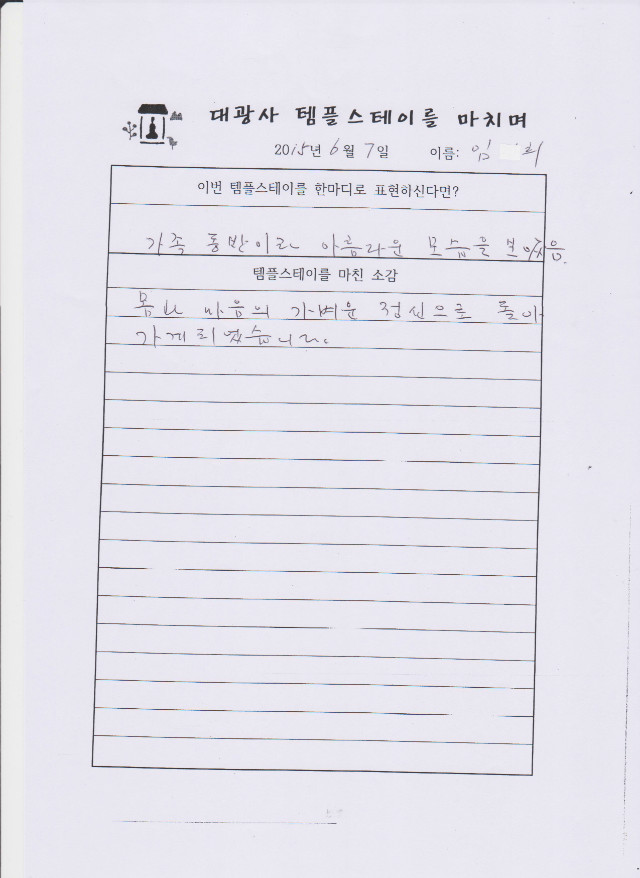 대광사 템플스테이를 마치며
2015년 6월 7일 이름: 임 희
이번 템플스테이를 한마디로 표현하신다면?
가족 동반이라 아름다운 모습을 보았음.
템플스테이를 마친 소감
몸과 마음의 가벼운 정신으로 돌아
가게 되었습니다.